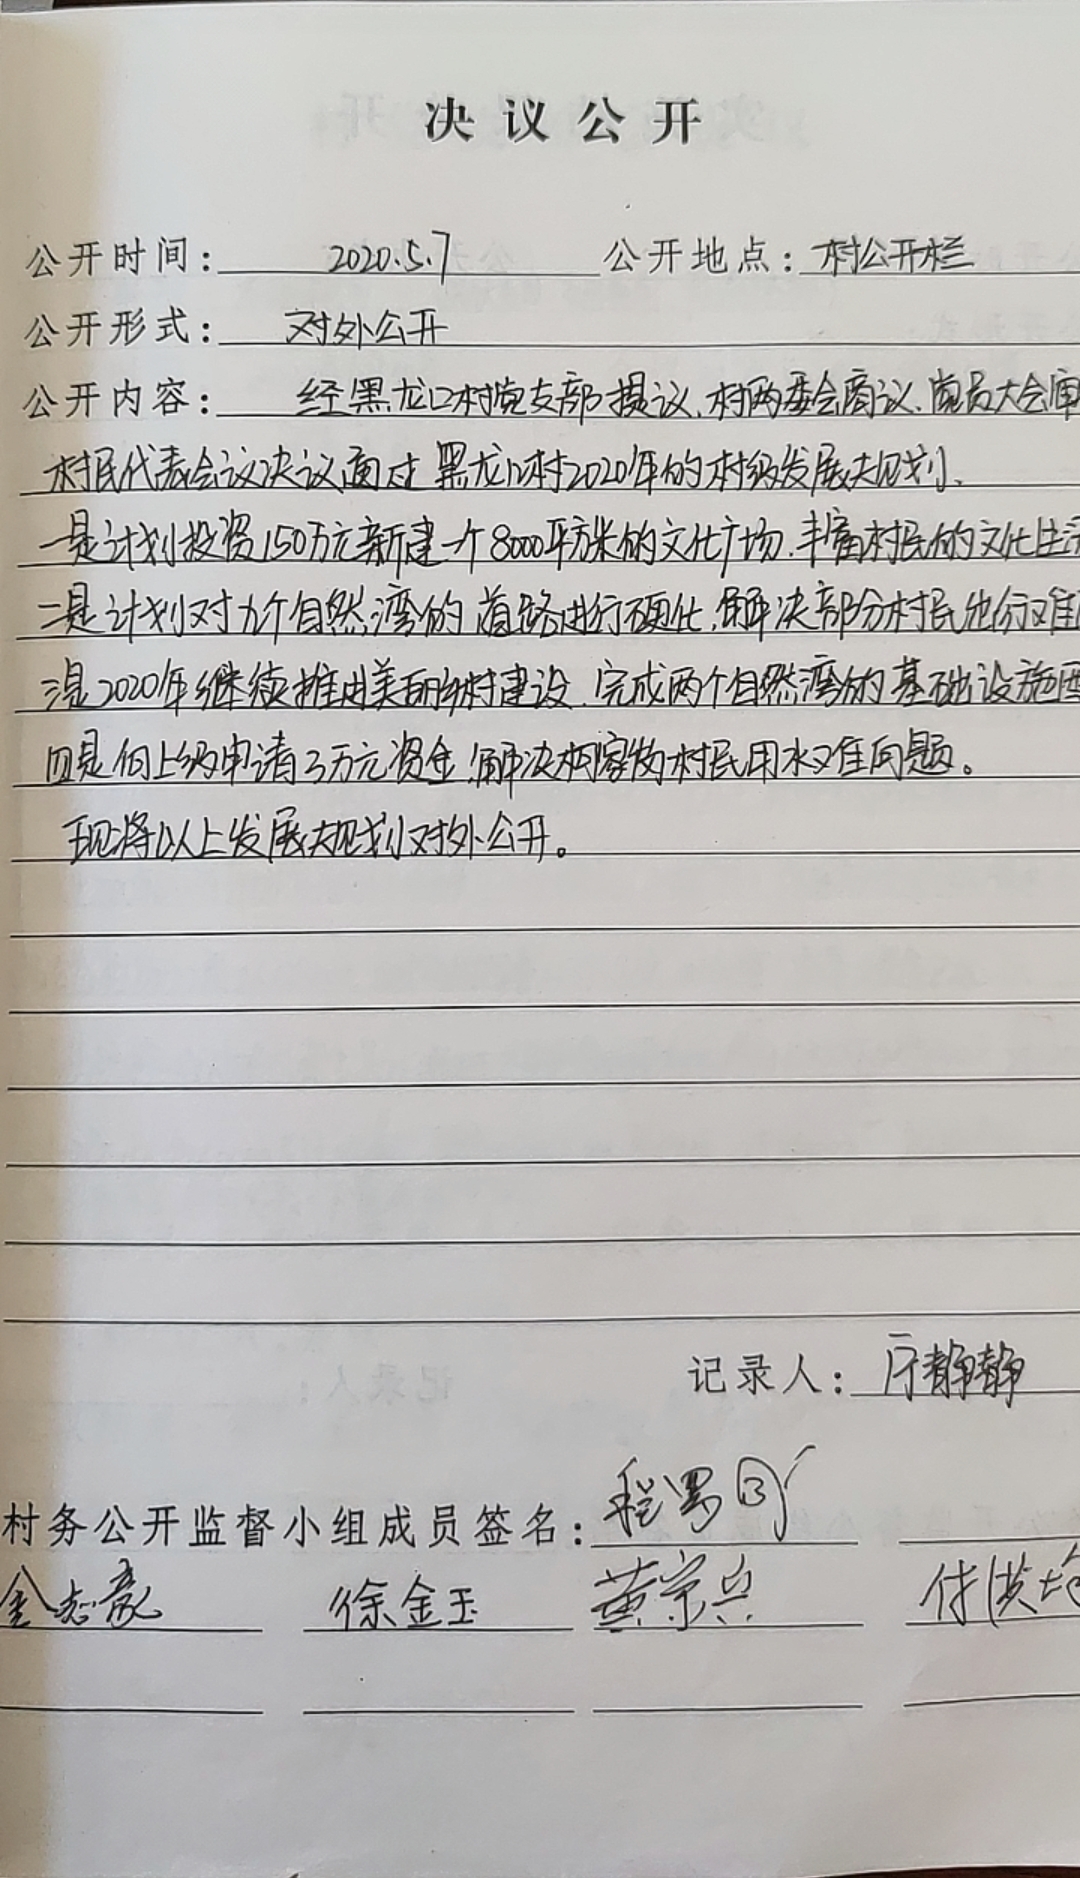 决议公开
公开时间：2020.5.7 公开地点：村公开栏
公开形式：对外公开
公开内容：经黑龙口村党支部提议、村两委会商议、党员大会审
村民代表会议决议通过黑龙口村2020年的村级发展规划、
一是计划投资150万元新建一个8000平方米的文化广场、丰富村民的文化生活
二是计划对九个自然湾的道路进行硬化，解决部分村民出行难
三是2020年继续推进美丽乡村建设、完成两个自然湾的基础设施
四是向上级申请3万元资金，解决柯家物村民用水难问题。
现将以上发展规划对外公开。
记录人：静静
村务公开监督小组成员签名：
金志豪 徐金玉 黄宗兵 付洪